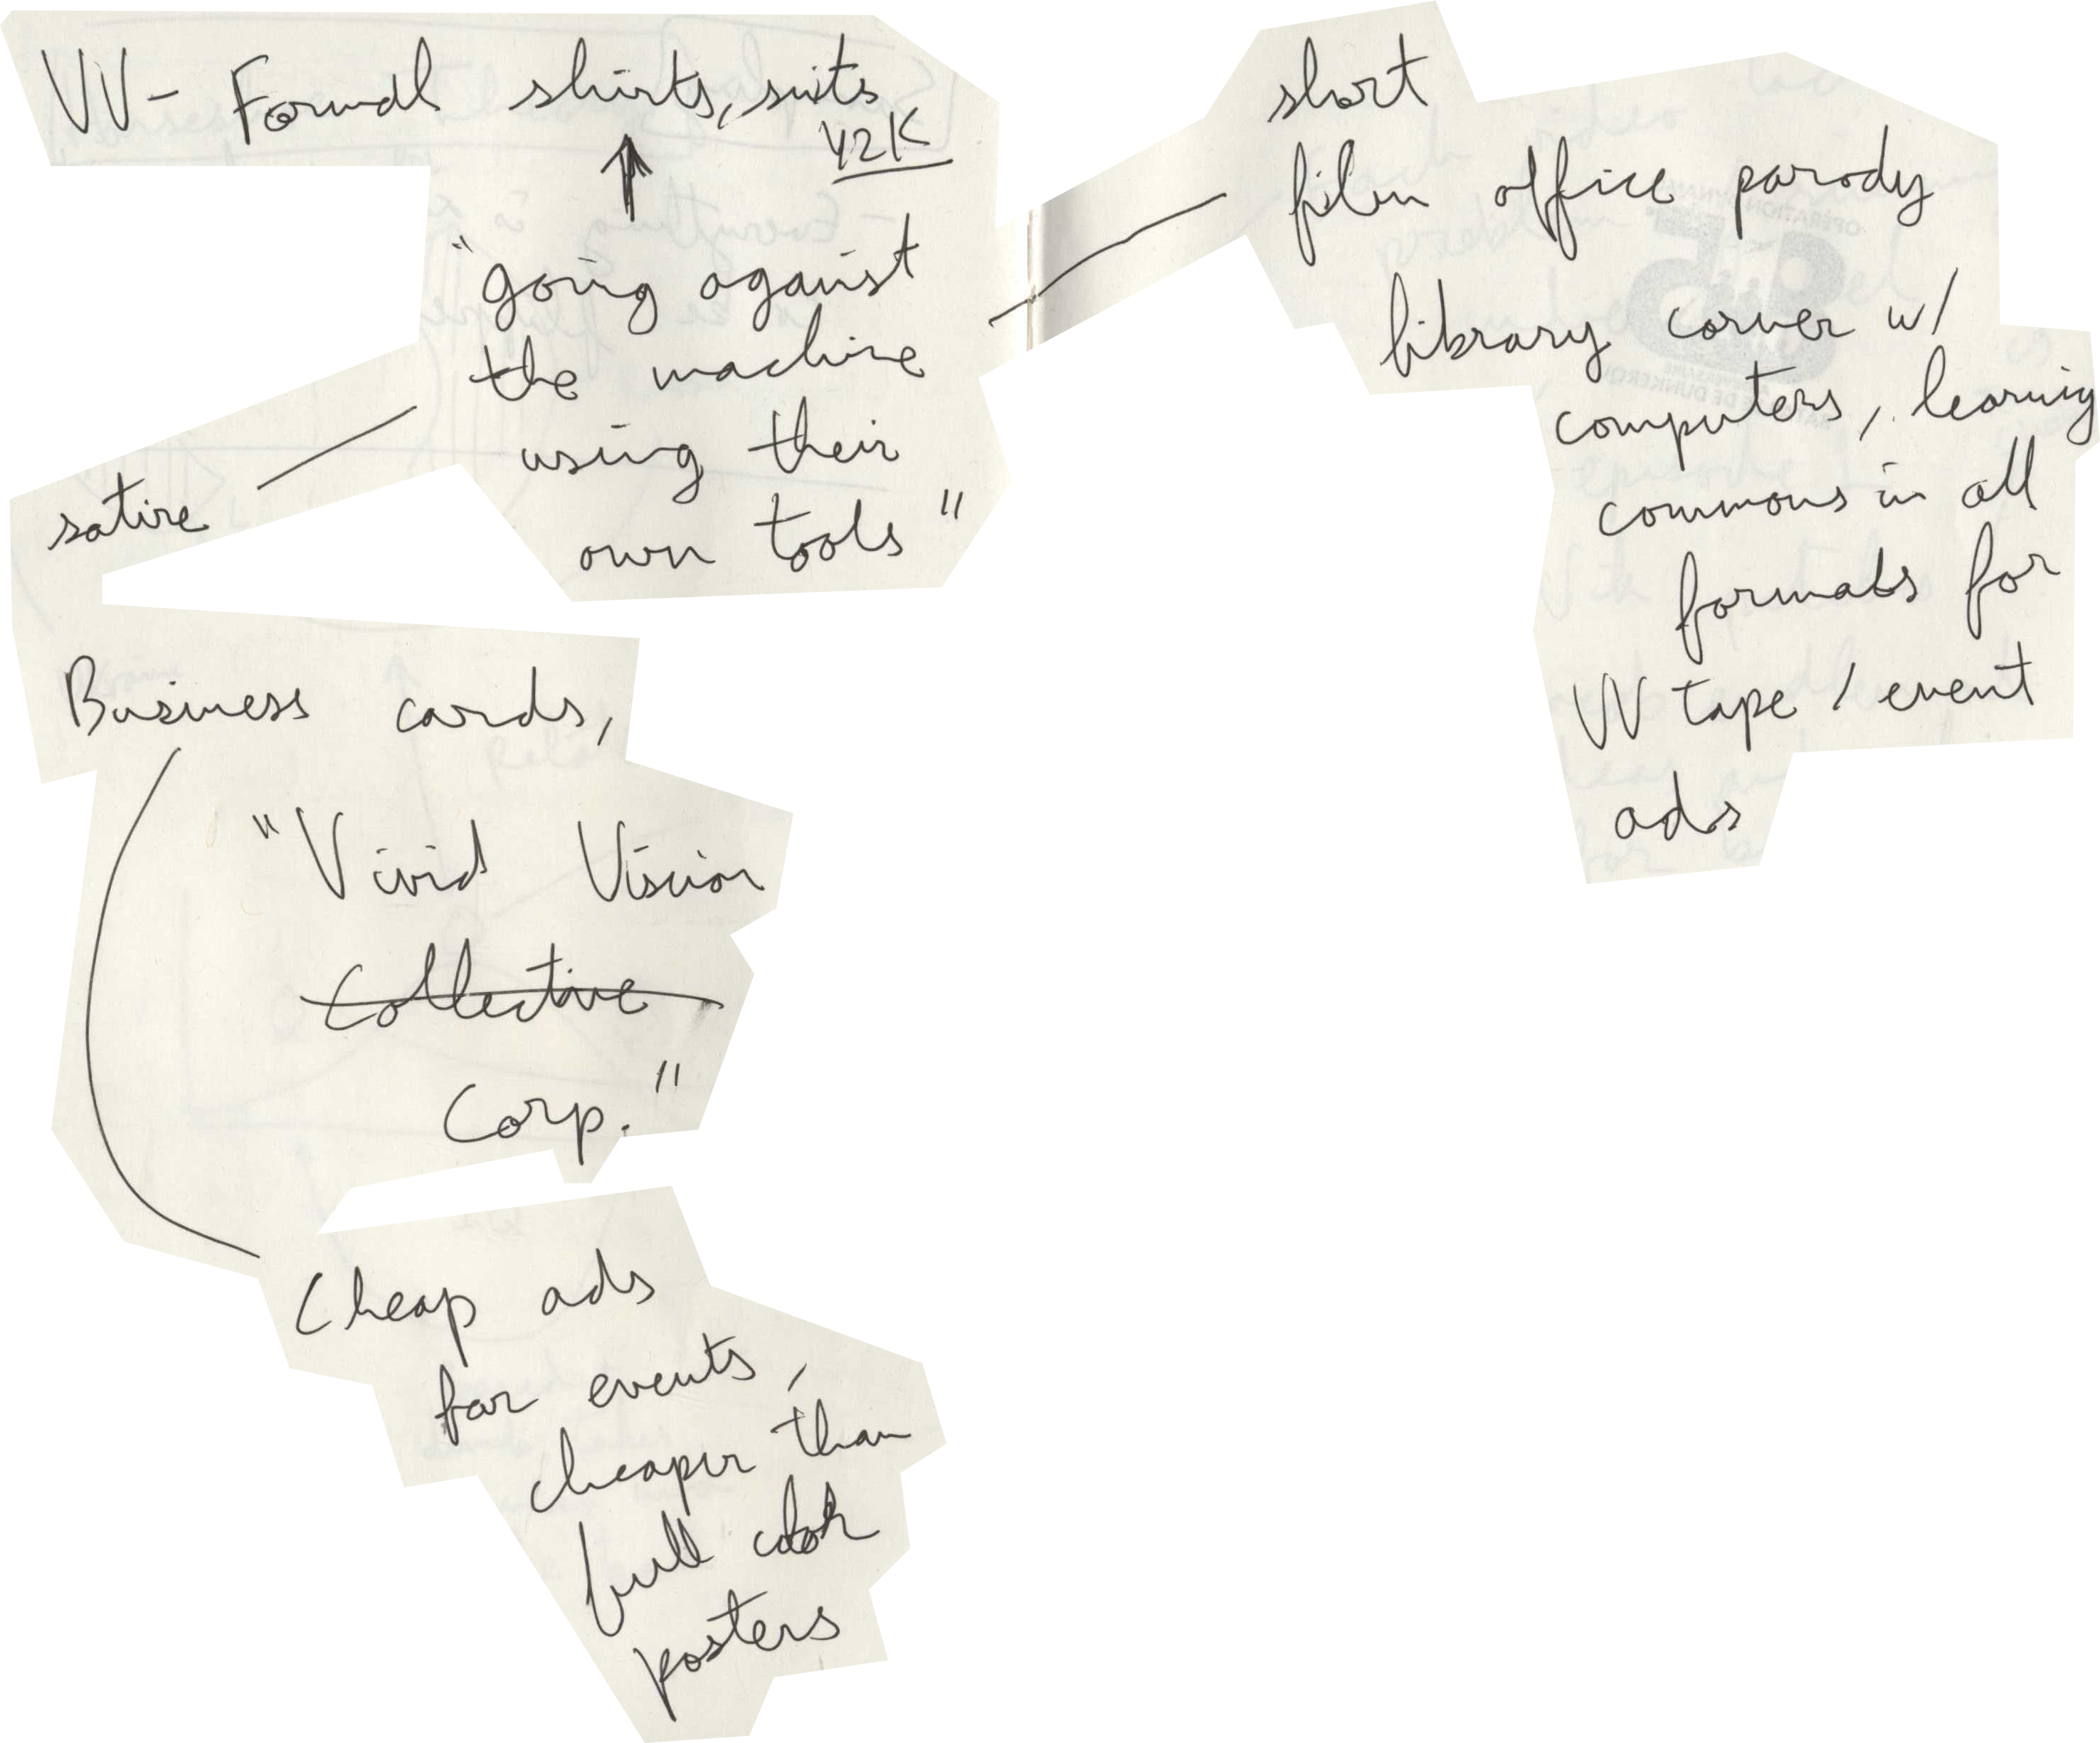 VV - Formal shirts, suits
Y2K
"going against
the machine
using their
own tools"
satire
Business cards,
"Vivid Vision
Collective
Corp."
Cheap ads
for events,
cheaper than
full color
posters
short
film office parody
library corner w/
computers, learning
commons in all
formats for
VV tape / event
ads